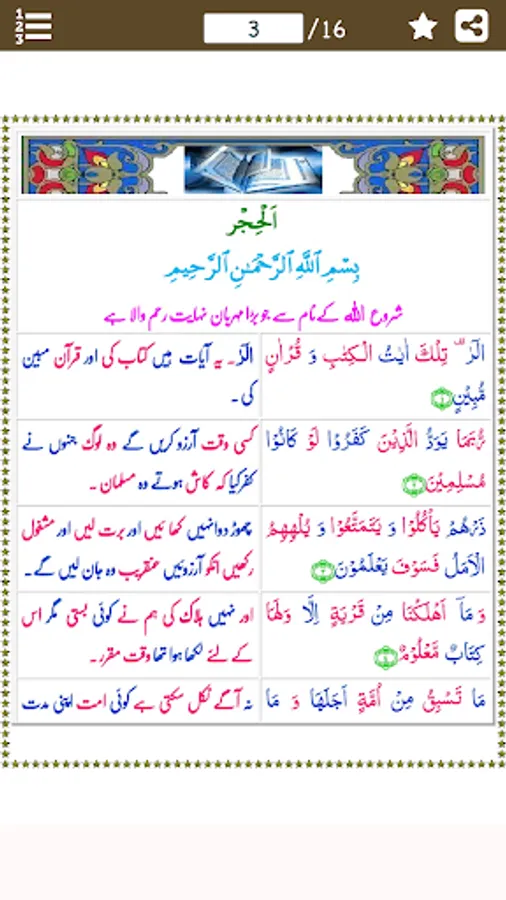 1
2
3
3
/16
اَلْحِجْر
بِسْمِ ٱللَّهِ ٱلرَّحْمَٰنِ ٱلرَّحِيمِ
شروع اللہ کے نام سے جو بڑا مہربان نہایت رحم والا ہے
الٓرٰ ۟ تِلْكَ اٰيٰتُ الْـكِتٰبِ وَ قُرْاٰنٍ
مُّبِيْنٍ ﴿۱﴾
الٓرٰ۔ یہ آیات ہیں کتاب کی اور قرآن مبین
کی۔
رُبَمَا يَوَدُّ الَّذِيْنَ كَفَرُوْا لَوْ كَانُوْا
مُسْلِمِيْنَ ﴿۲﴾
کسی وقت آرزو کریں گے وہ لوگ جنہوں نے
کفر کیا کہ کاش ہوتے وہ مسلمان۔
ذَرْهُمْ يَاْكُلُوْا وَ يَتَمَتَّعُوْا وَ يُلْهِهِمُ
الْاَمَلُ فَسَوْفَ يَعْلَمُوْنَ ﴿۳﴾
چھوڑ دو انہیں کھائیں اور برت لیں اور مشغول
رکھیں انکو آرزوئیں عنقریب وہ جان لیں گے۔
وَ مَاۤ اَهْلَكْنَا مِنْ قَرْيَةٍ اِلَّا وَ لَهَا
كِتَابٌ مَّعْلُوْمٌ ﴿۴﴾
اور نہیں ہلاک کی ہم نے کوئی بستی مگر اس
کے لئے لکھا ہوا تھا وقت مقرر۔
مَا تَسْبِقُ مِنْ اُمَّةٍ اَجَلَهَا وَ مَا
نہ آگے نکل سکتی ہے کوئی امت اپنی مدت